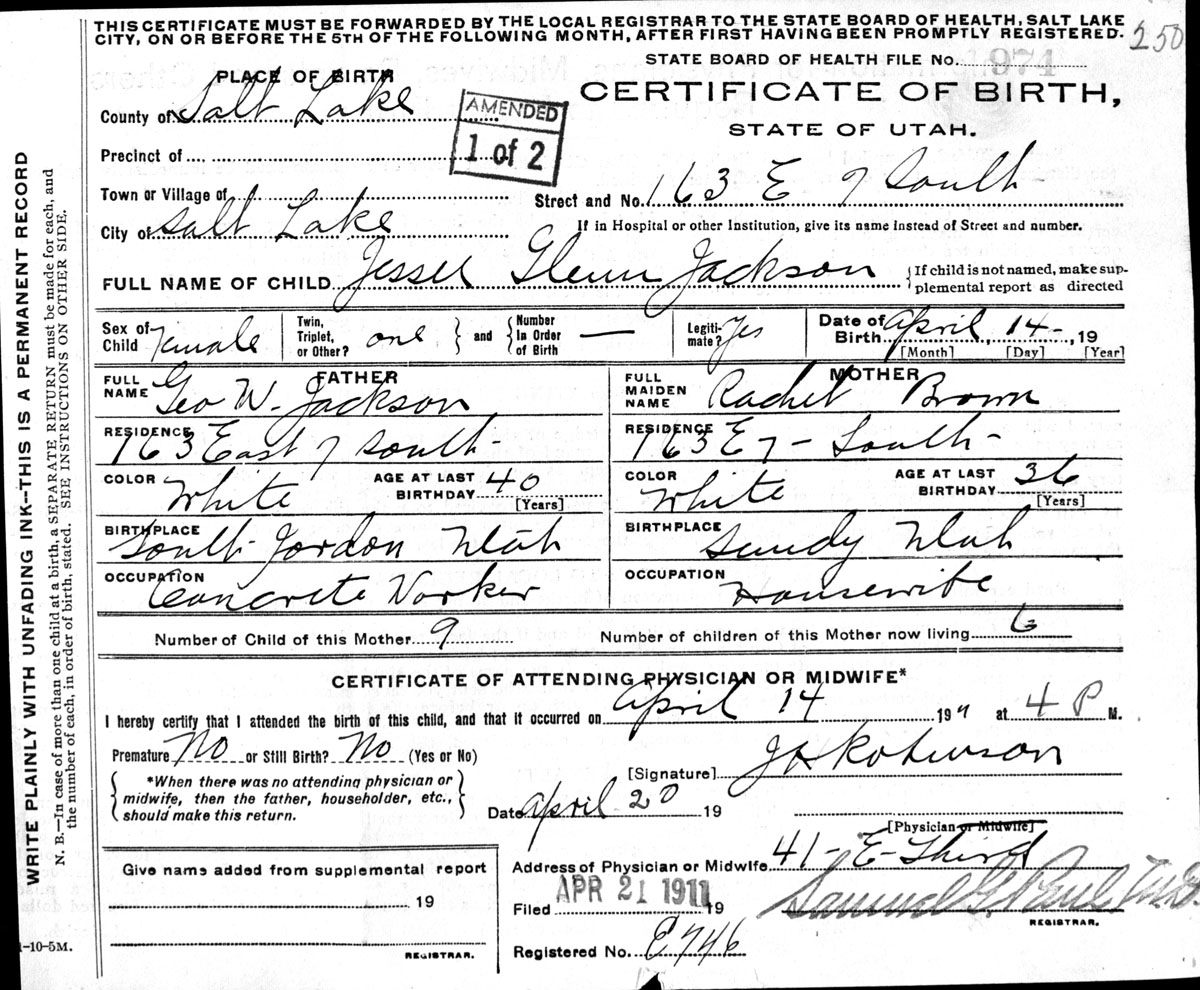 THIS CERTIFICATE MUST BE FORWARDED BY THE LOCAL REGISTRAR TO THE STATE BOARD OF HEALTH, SALT LAKE
CITY, ON OR BEFORE THE 5TH OF THE FOLLOWING MONTH, AFTER FIRST HAVING BEEN PROMPTLY REGISTERED.
250
STATE BOARD OF HEALTH FILE No. 974
PLACE OF BIRTH
CERTIFICATE OF BIRTH,
County of Salt Lake
AMENDED
1 of 2
STATE OF UTAH.
Precinct of
Town or Village of
Street and No. 163 E 7 South
City of Salt Lake
If in Hospital or other Institution, give its name instead of Street and number.
FULL NAME OF CHILD Jessel Glenn Jackson
If child is not named, make sup-
plemental report as directed
Sex of Child Female
Twin, Triplet, or Other? one and Number In Order of Birth —
Legiti-mate? Yes
Date of Birth April 14 - , 19
[Month] [Day] [Year]
FATHER
MOTHER
FULL NAME Geo W. Jackson
FULL MAIDEN NAME Rachel Brown
RESIDENCE 163 East 7 South
RESIDENCE 163 E 7 - South -
COLOR White AGE AT LAST BIRTHDAY 40 [Years]
COLOR White AGE AT LAST BIRTHDAY 36 [Years]
BIRTHPLACE South Jordon Utah
BIRTHPLACE Sandy Utah
OCCUPATION Concrete Worker
OCCUPATION Housewife
Number of Child of this Mother 9 Number of children of this Mother now living 6
CERTIFICATE OF ATTENDING PHYSICIAN OR MIDWIFE*
I hereby certify that I attended the birth of this child, and that it occurred on April 14 19 11 at 4 P M.
Premature No or Still Birth? No (Yes or No)
*When there was no attending physician or
midwife, then the father, householder, etc.,
should make this return.
[Signature] J H Robinson
Date April 20 19
[Physician or Midwife]
Address of Physician or Midwife 41 - E - Third
Give name added from supplemental report
19
REGISTRAR.
Filed APR 21 1911 19
Samuel G. Paul M.D.
REGISTRAR.
Registered No. E746
1-10-5M.
WRITE PLAINLY WITH UNFADING INK--THIS IS A PERMANENT RECORD
N. B.—In case of more than one child at a birth, a SEPARATE RETURN must be made for each, and
the number of each, in order of birth, stated. SEE INSTRUCTIONS ON OTHER SIDE.